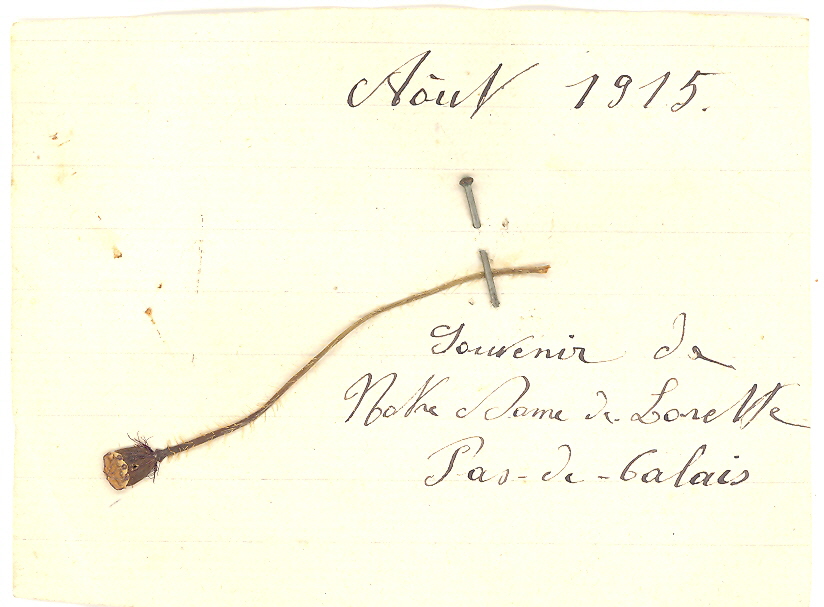 Aôut 1915.
Souvenir de
Notre Dame de Lorette
Pas-de-Calais